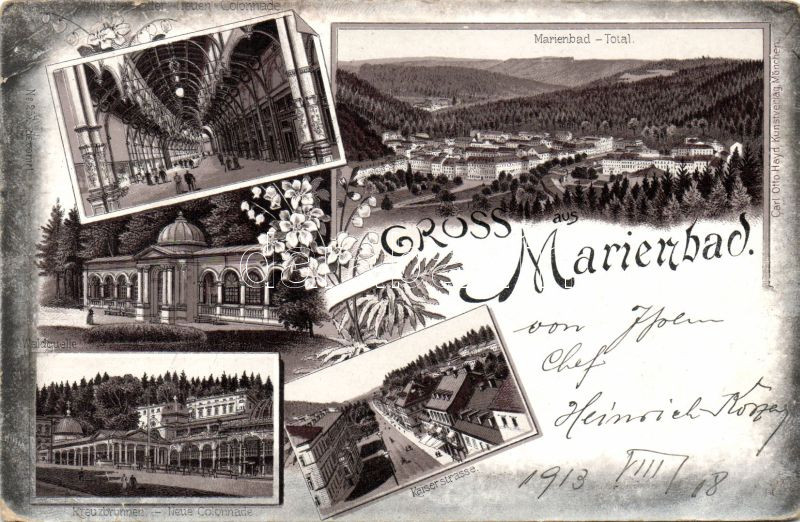 neuen Colonnade
Marienbad – Total.
Carl Otto Hayd Kunstverlag, München.
GRUSS aus
Marienbad.
Waldquelle
Kreuzbrunnen. – Neue Colonnade
Kaiserstrasse.
von
Chef
Heinrich
1913 VIII/18